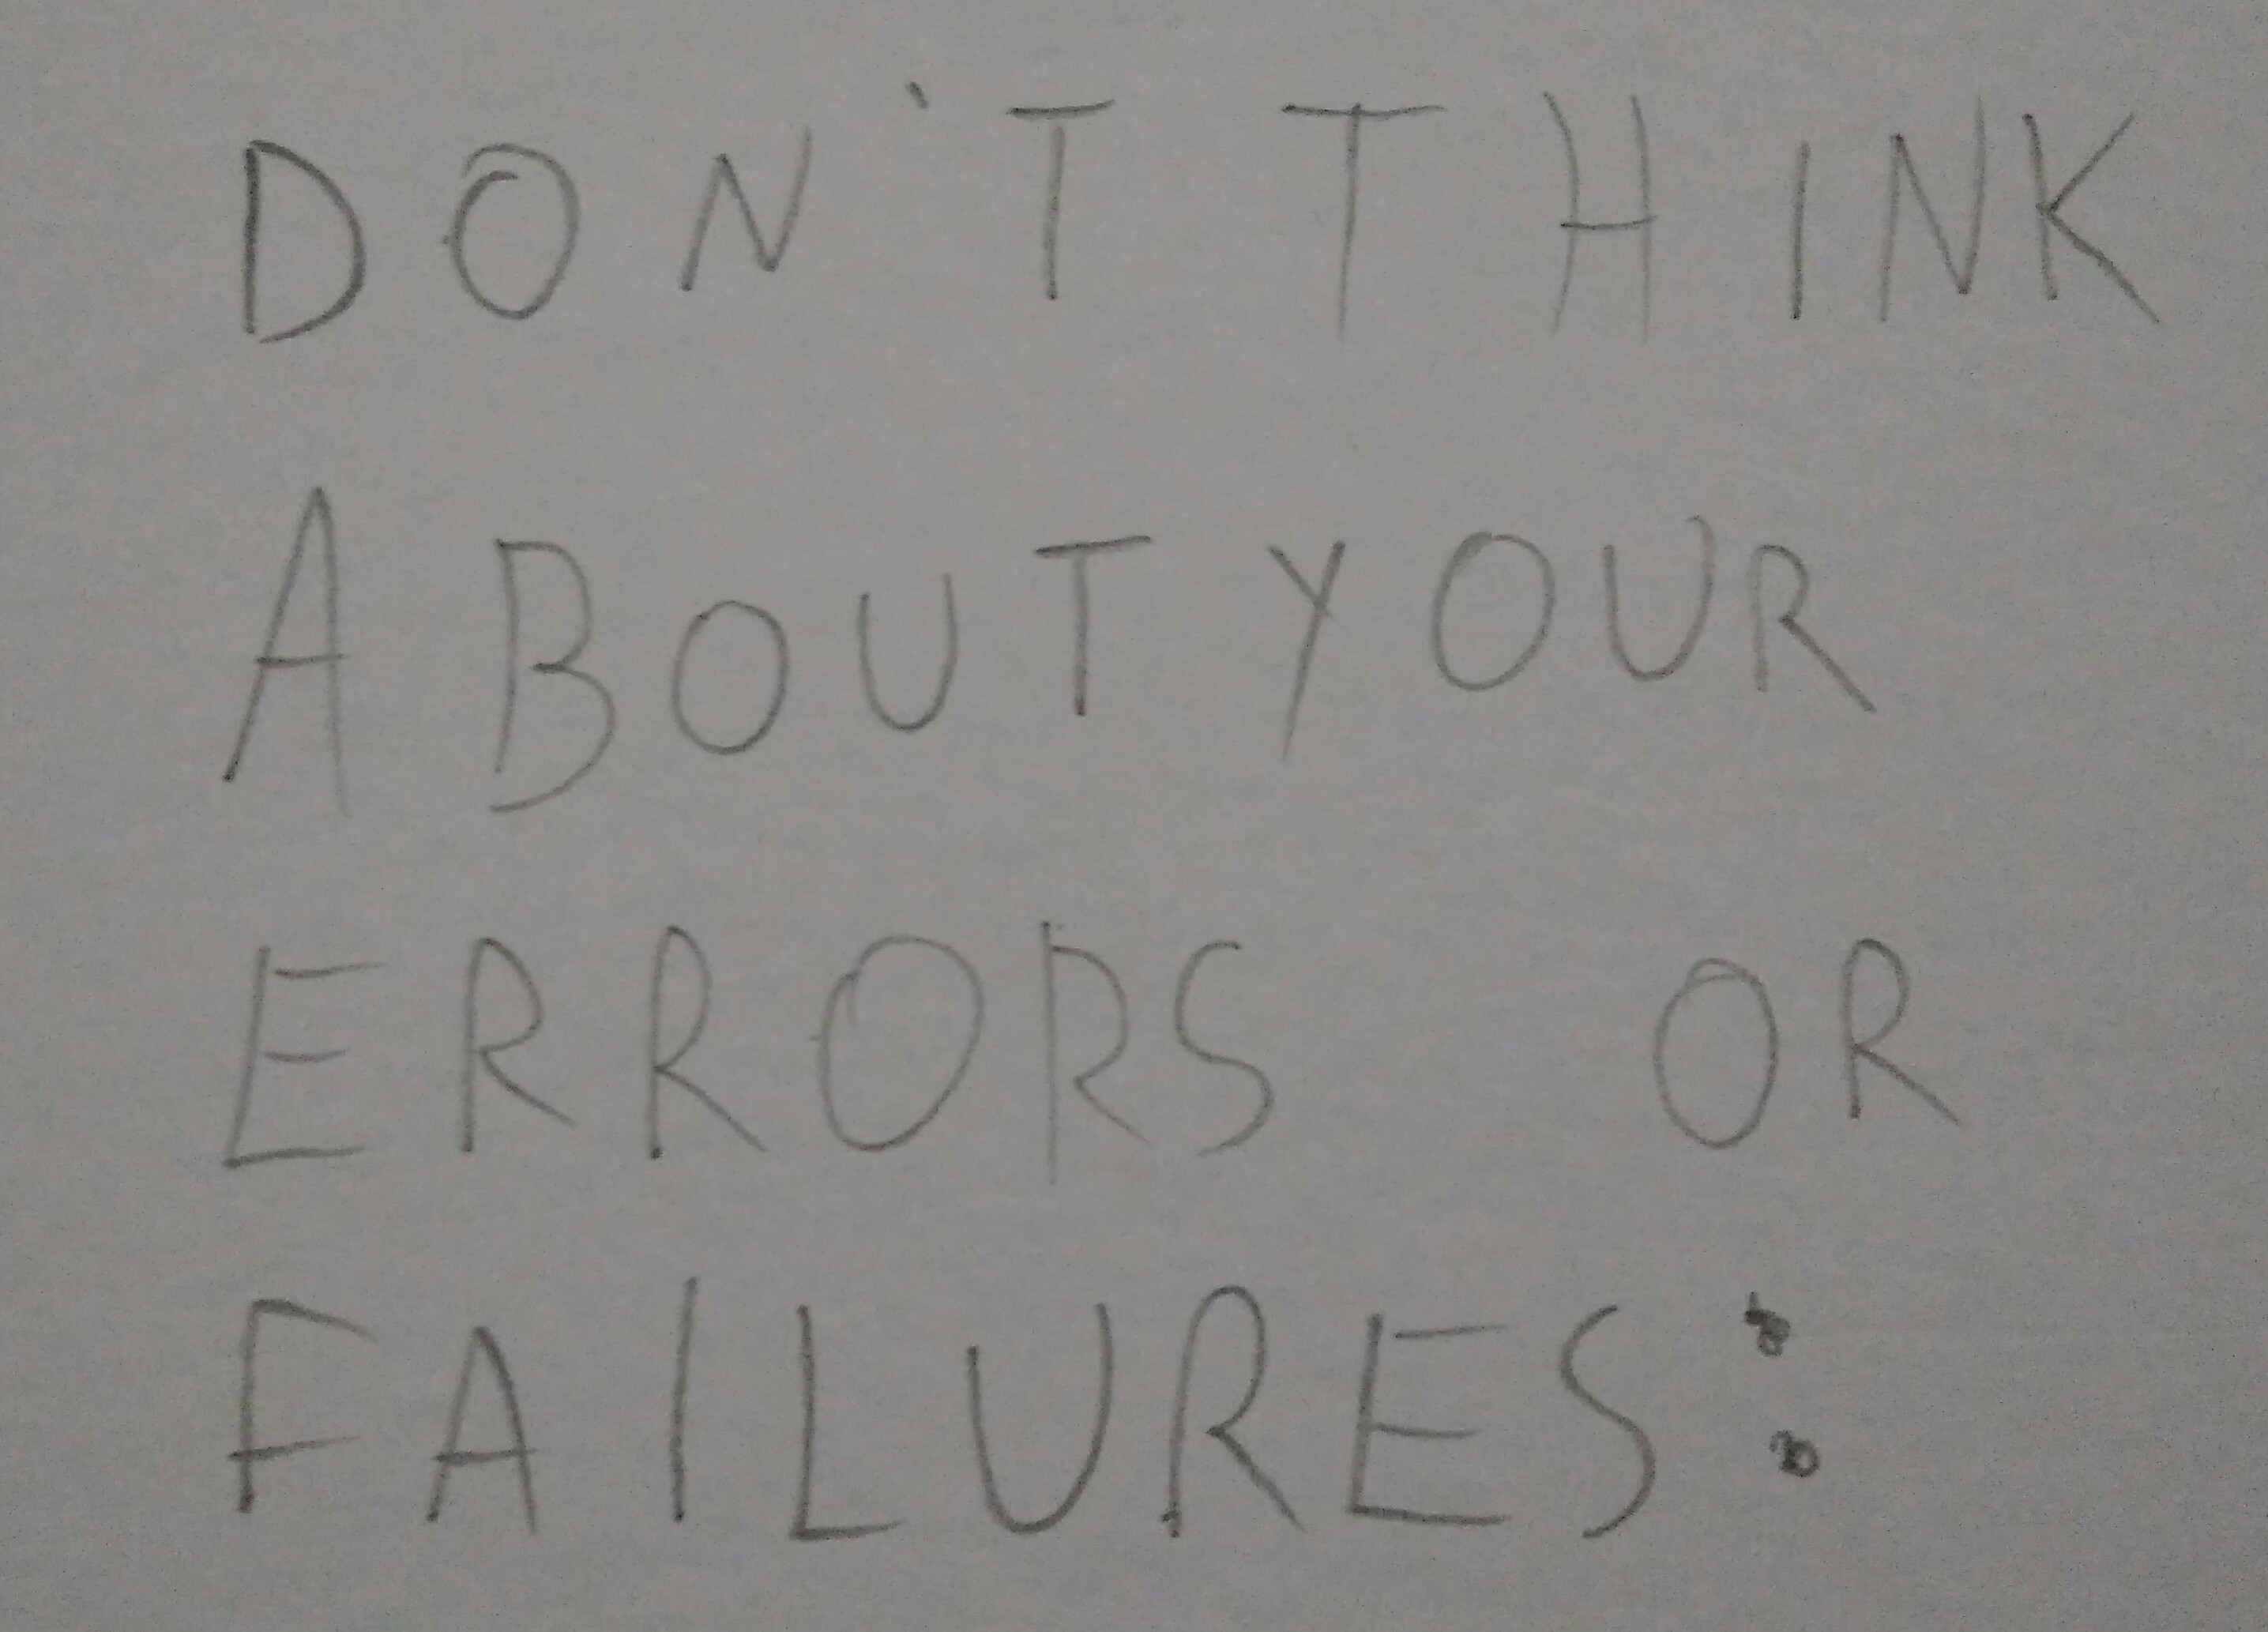 DON'T THINK
ABOUT YOUR
ERRORS OR
FAILURES: